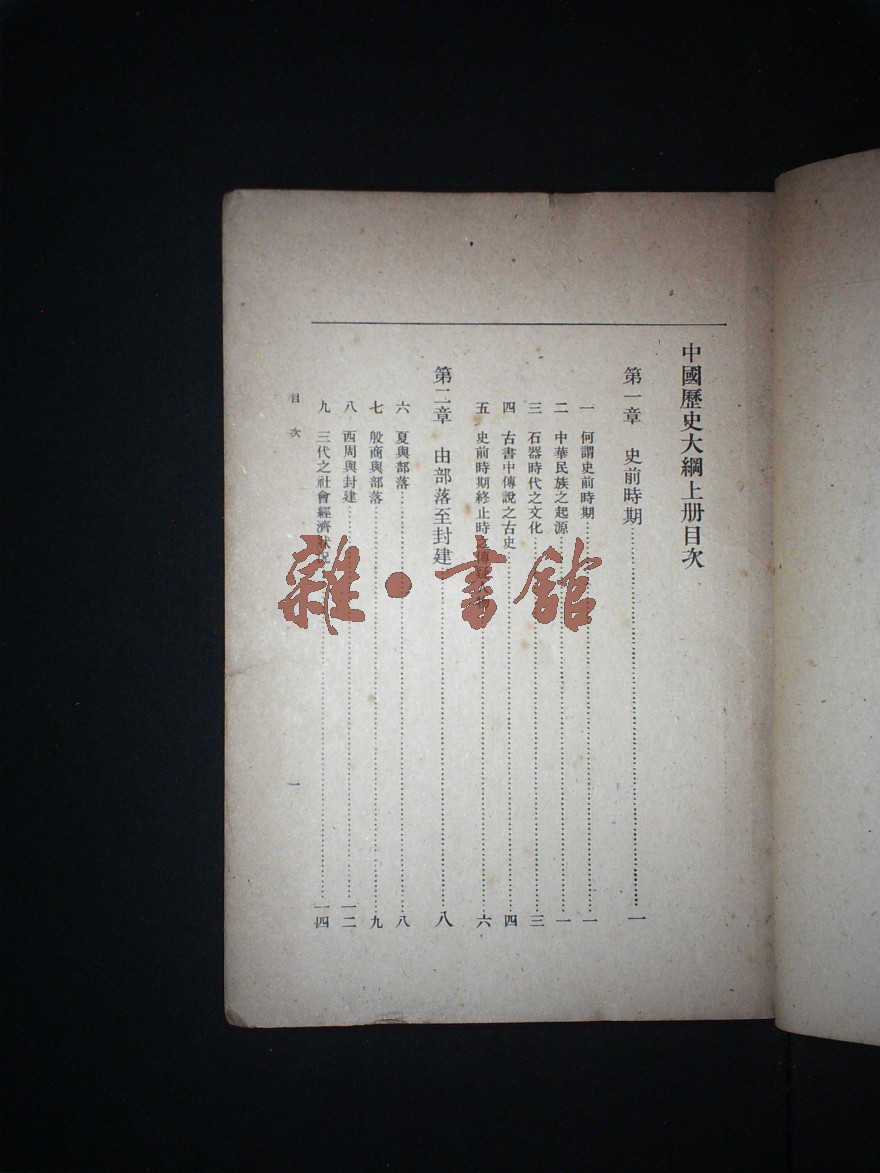 中國歷史大綱上册目次
第一章 史前時期……一
一 何謂史前時期……一
二 中華民族之起源……一
三 石器時代之文化……三
四 古書中傳說之古史……四
五 史前時期終止時之傳疑人物……六
第二章 由部落至封建……八
六 夏與部落……八
七 殷商與部落……九
八 西周與封建……一二
九 三代之社會經濟狀況……一四
目次
一
雜·書館